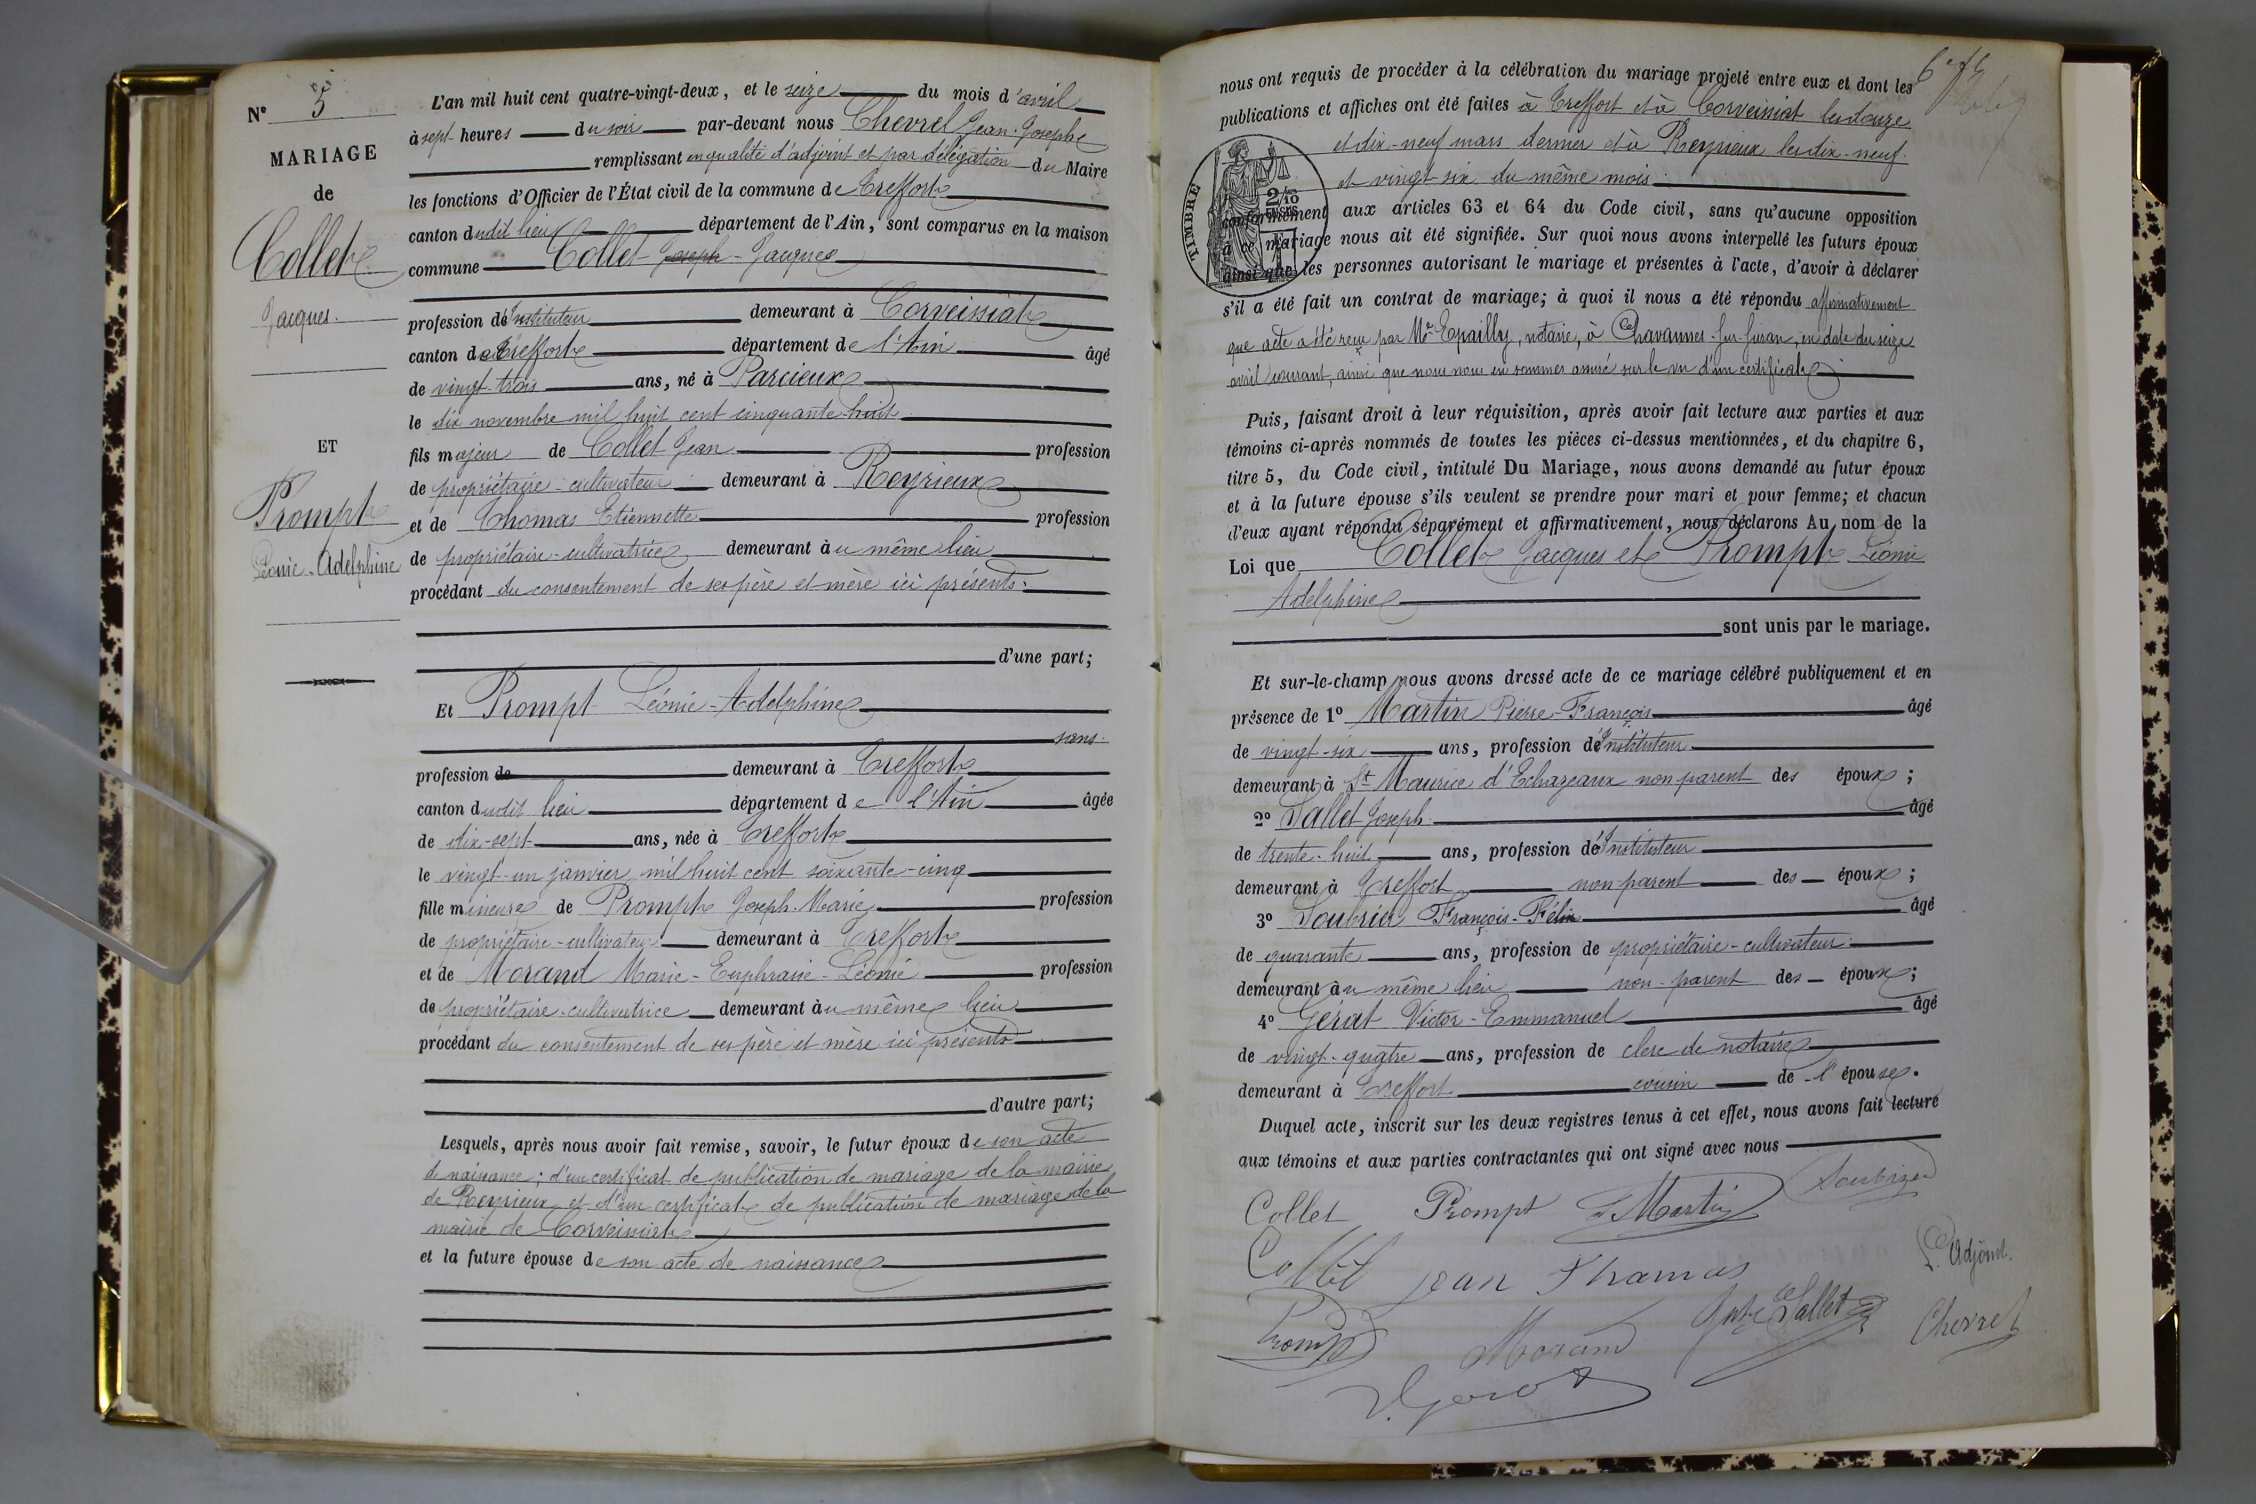 N° 5
MARIAGE
de
Collet
Jacques.
ET
Prompt
Léonie-Adelphine
L'an mil huit cent quatre-vingt-deux, et le seize du mois d'avril
à sept heures du soir par-devant nous Chevrel Jean-Joseph
remplissant en qualité d'adjoint et par délégation du Maire
les fonctions d'Officier de l'État civil de la commune de Treffort
canton dudit lieu département de l'Ain, sont comparus en la maison
commune Collet Joseph - Jacques
profession d'Instituteur demeurant à Corveissiat
canton de Treffort département de l'Ain âgé
de vingt-trois ans, né à Parcieux
le dix novembre mil huit cent cinquante-huit
fils majeur de Collet Jean profession
de propriétaire-cultivateur demeurant à Reyrieux
et de Thomas Etiennette profession
de propriétaire-cultivatrice demeurant au même lieu
procédant du consentement de ses père et mère ici présents.
d'une part;
Et Prompt Léonie-Adelphine
sans
profession de demeurant à Treffort
canton dudit lieu département de l'Ain âgée
de dix-sept ans, née à Treffort
le vingt-un janvier mil huit cent soixante-cinq
fille mineure de Prompt Joseph-Marie profession
de propriétaire-cultivateur demeurant à Treffort
et de Morand Marie-Euphrasie-Léonie profession
de propriétaire-cultivatrice demeurant au même lieu
procédant du consentement de ses père et mère ici présents
d'autre part;
Lesquels, après nous avoir fait remise, savoir, le futur époux de son acte
de naissance; d'un certificat de publication de mariage de la mairie
de Reyrieux et d'un certificat de publication de mariage de la
mairie de Corveissiat
et la future épouse de son acte de naissance
nous ont requis de procéder à la célébration du mariage projeté entre eux et dont les
publications et affiches ont été faites à Treffort et à Corveissiat les douze
et dix-neuf mars dernier et à Reyrieux les dix-neuf
et vingt-six du même mois
TIMBRE
2/10
EN SUS
conformément aux articles 63 et 64 du Code civil, sans qu'aucune opposition
à ce mariage nous ait été signifiée. Sur quoi nous avons interpellé les futurs époux
ainsi que les personnes autorisant le mariage et présentes à l'acte, d'avoir à déclarer
s'il a été fait un contrat de mariage; à quoi il nous a été répondu affirmativement
que acte a été reçu par Me Epailly, notaire, à Chavannes-sur-Suran, en date du seize
avril courant, ainsi que nous nous en sommes assuré sur le vu d'un certificat
Puis, faisant droit à leur réquisition, après avoir fait lecture aux parties et aux
témoins ci-après nommés de toutes les pièces ci-dessus mentionnées, et du chapitre 6,
titre 5, du Code civil, intitulé Du Mariage, nous avons demandé au futur époux
et à la future épouse s'ils veulent se prendre pour mari et pour femme; et chacun
d'eux ayant répondu séparément et affirmativement, nous déclarons Au nom de la
Loi que Collet Jacques et Prompt Léonie
Adelphine
sont unis par le mariage.
Et sur-le-champ nous avons dressé acte de ce mariage célébré publiquement et en
présence de 1° Martin Pierre-François âgé
de vingt-six ans, profession d'Instituteur
demeurant à St Maurice d'Echazeaux non parent des époux;
2° Sallet Joseph âgé
de trente-huit ans, profession d'Instituteur
demeurant à Treffort non parent des époux;
3° Soubrier François-Félix âgé
de quarante ans, profession de propriétaire-cultivateur
demeurant au même lieu non-parent des époux;
4° Gérat Victor-Emmanuel âgé
de vingt-quatre ans, profession de clerc de notaire
demeurant à Treffort cousin de l'épouse.
Duquel acte, inscrit sur les deux registres tenus à cet effet, nous avons fait lecture
aux témoins et aux parties contractantes qui ont signé avec nous
Collet Prompt Martin
Collet Jean Thomas L'Adjoint.
Prompt Morand Sallet Chevrel